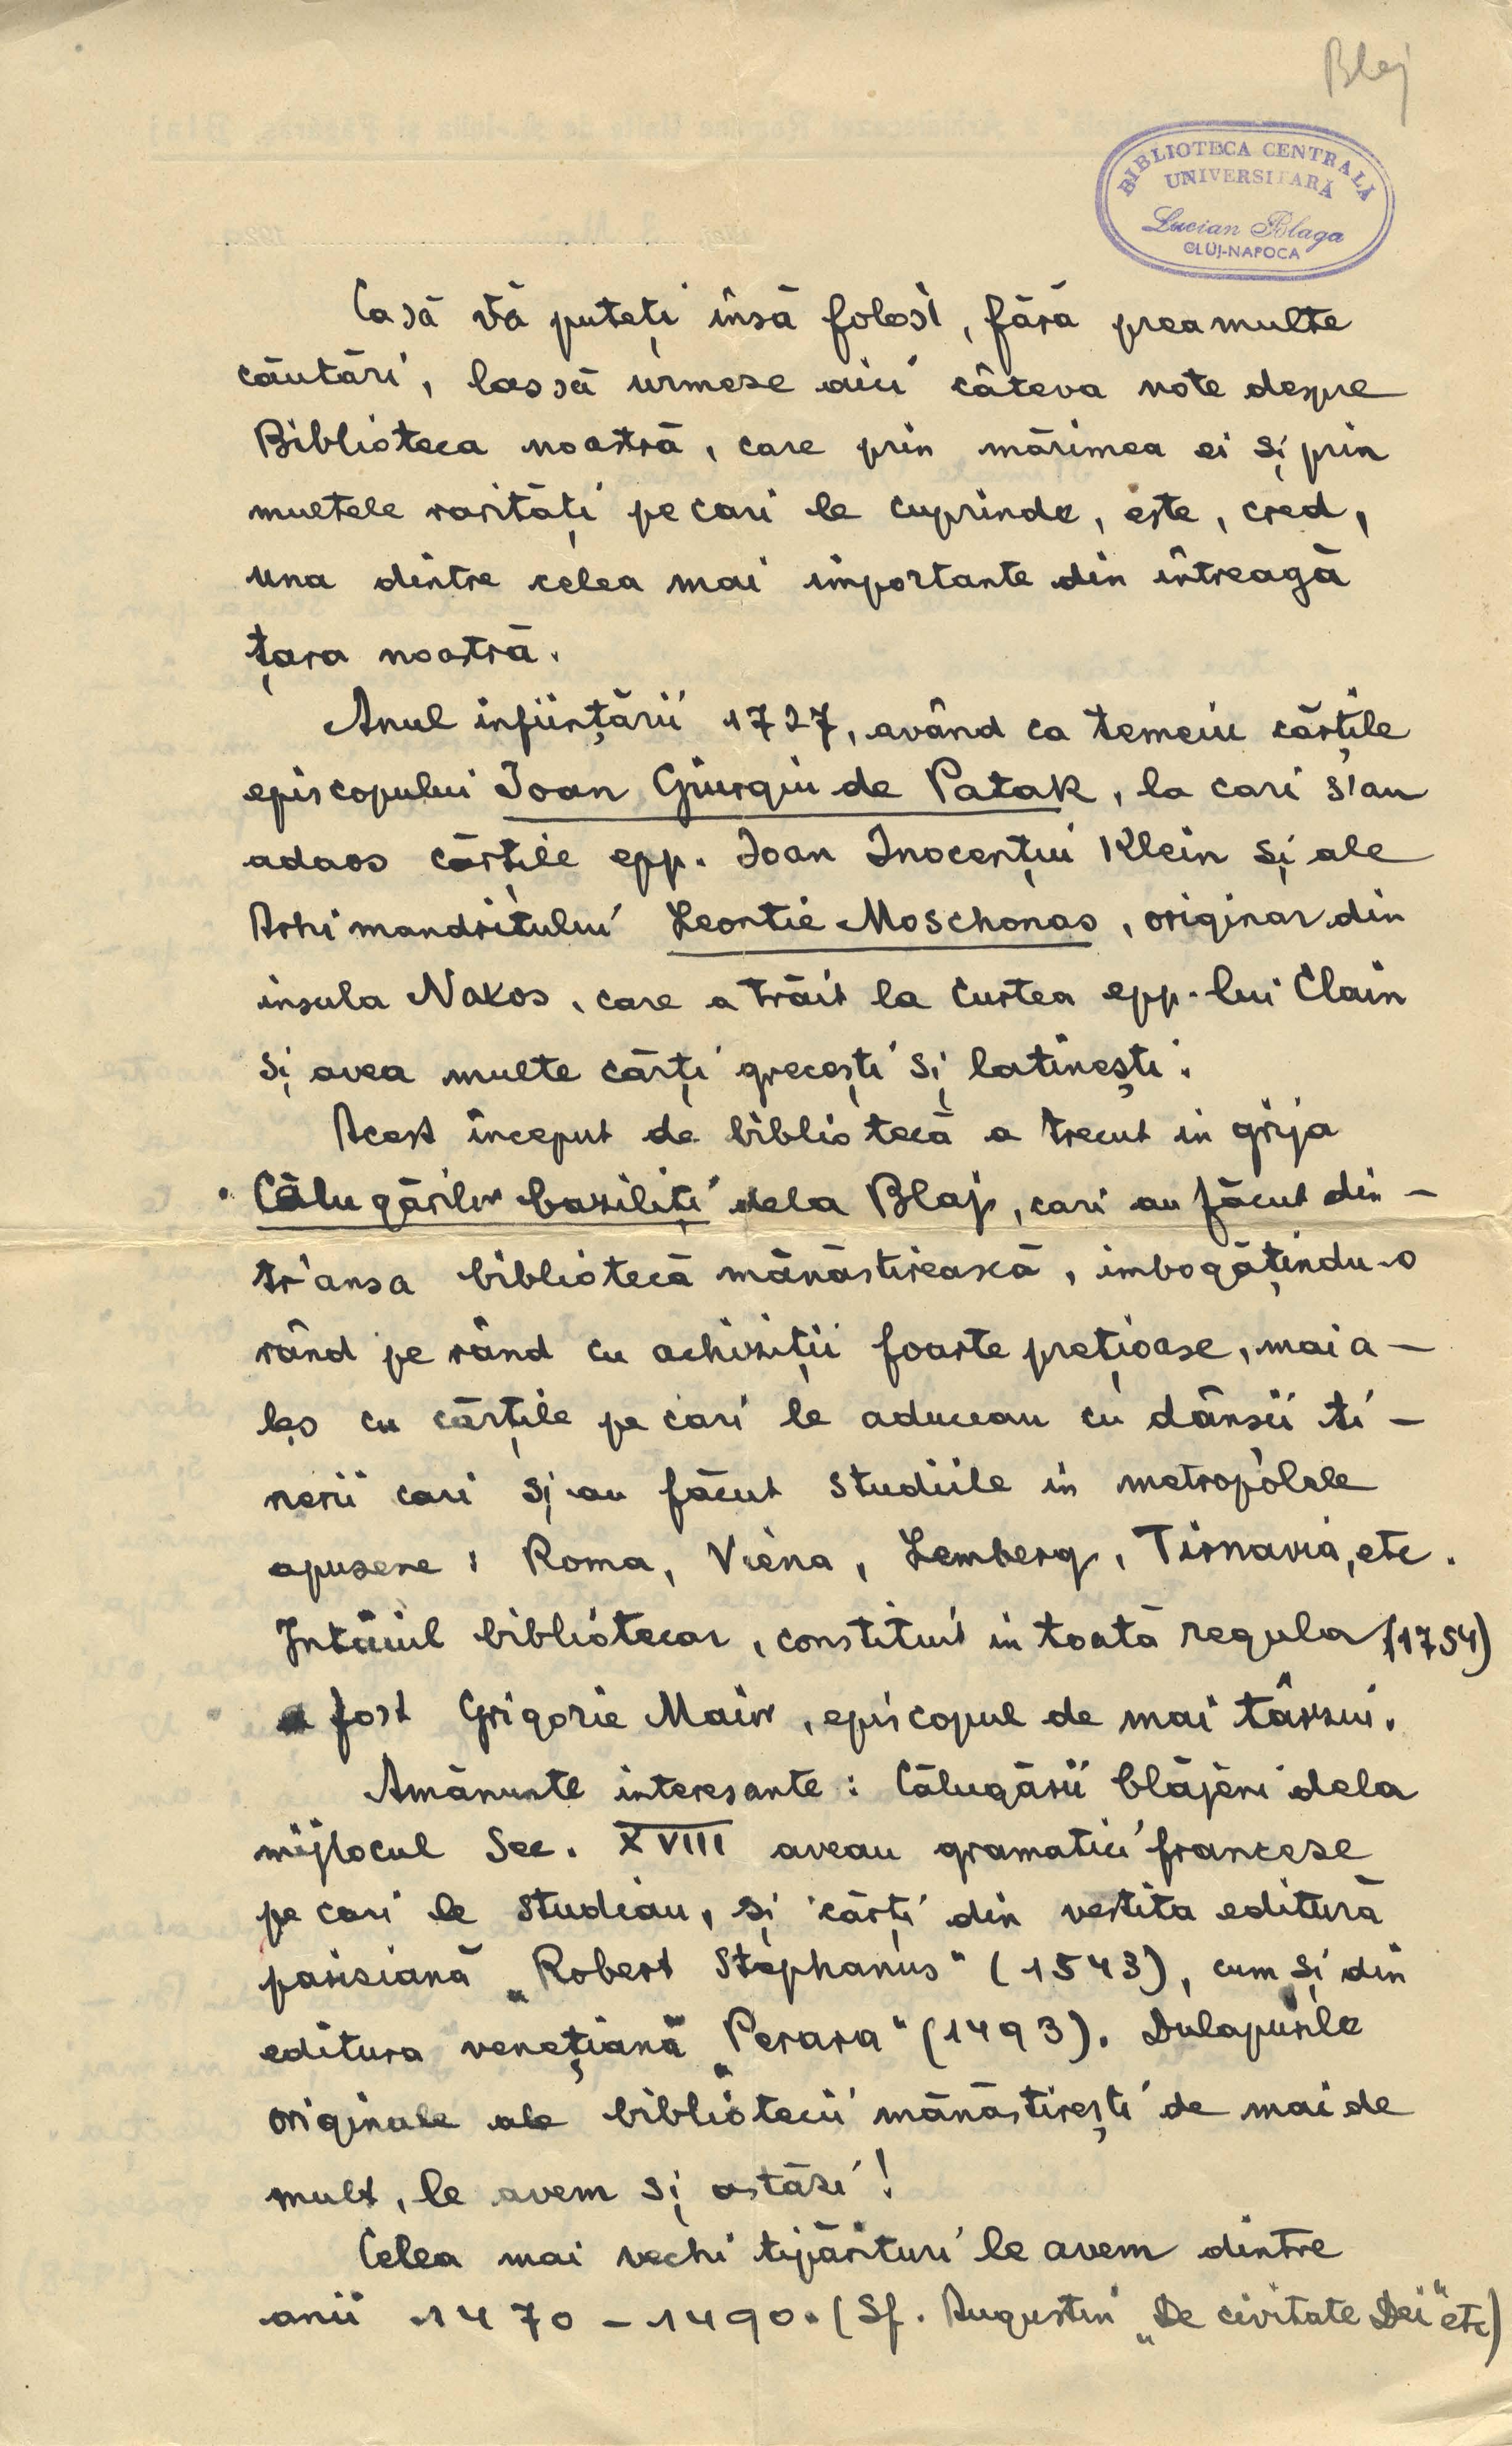 Blaj
BIBLIOTECA CENTRALĂ
UNIVERSITARĂ
Lucian Blaga
CLUJ-NAPOCA
Ca să Vă puteți însă folosì, fără prea multe
căutări, las să urmeze aici câteva note despre
Biblioteca noastră, care prin mărimea ei și prin
multele rarități pe cari le cuprinde, este, cred,
una dintre celea mai importante din întreagă
țara noastră.
Anul înființării 1727, având ca temeiu cărțile
episcopului Ioan Giurgiu de Patak, la cari s'au
adaos cărțile epp. Ioan Inocențiu Klein și ale
Arhimandritului Leontie Moschonas, originar din
insula Naxos, care a trăit la Curtea epp-lui Clain
și avea multe cărți grecești și latinești.
Acest început de bibliotecă a trecut in grija
Călugărilor baziliți dela Blaj, cari au făcut din-
tr'ansa bibliotecă mănăstirească, imbogățindu-o
rând pe rând cu achiziții foarte prețioase, mai a-
les cu cărțile pe cari le aduceau cu dânsii ti-
nerii cari și-au făcut studiile in metropolele
apusene: Roma, Viena, Lemberg, Tirnavia, etc.
Intâiul bibliotecar, constituit in toată regula (1754)
a fost Grigorie Maior, episcopul de mai târziu.
Amănunte interesante: Călugării blăjeni dela
mijlocul Sec. XVIII aveau gramatici franceze
pe cari le studiau, și cărți din vestita editură
parisiană „Robert Stephanus" (1543), cum și din
editura venețiană „Perara" (1493). Dulapurile
originale ale bibliotecii mănăstirești de mai de
mult, le avem și astăzi!
Celea mai vechi tipărituri le avem dintre
anii 1470-1490. (Sf. Augustin „De civitate Dei" etc)